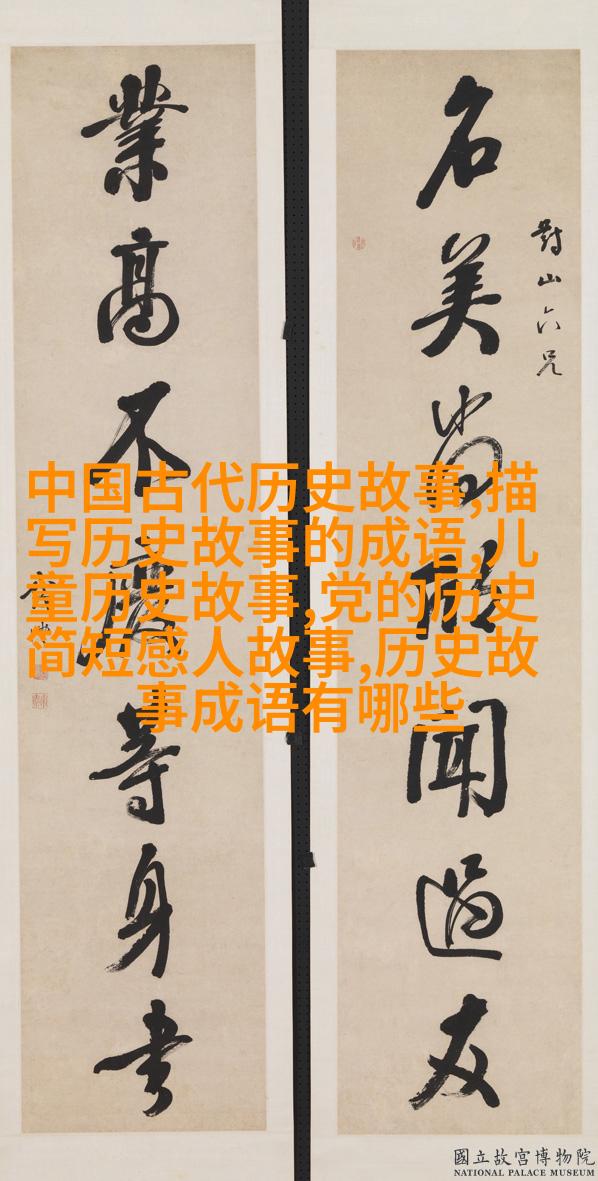 對山六兄
名美尚欣聞過友
業高不廢等身書
中国古代历史故事,描
写历史故事的成语,儿
童历史故事,党的历史
简短感人故事,历史故
事成语有哪些
國立故宮博物院
NATIONAL PALACE MUSEUM